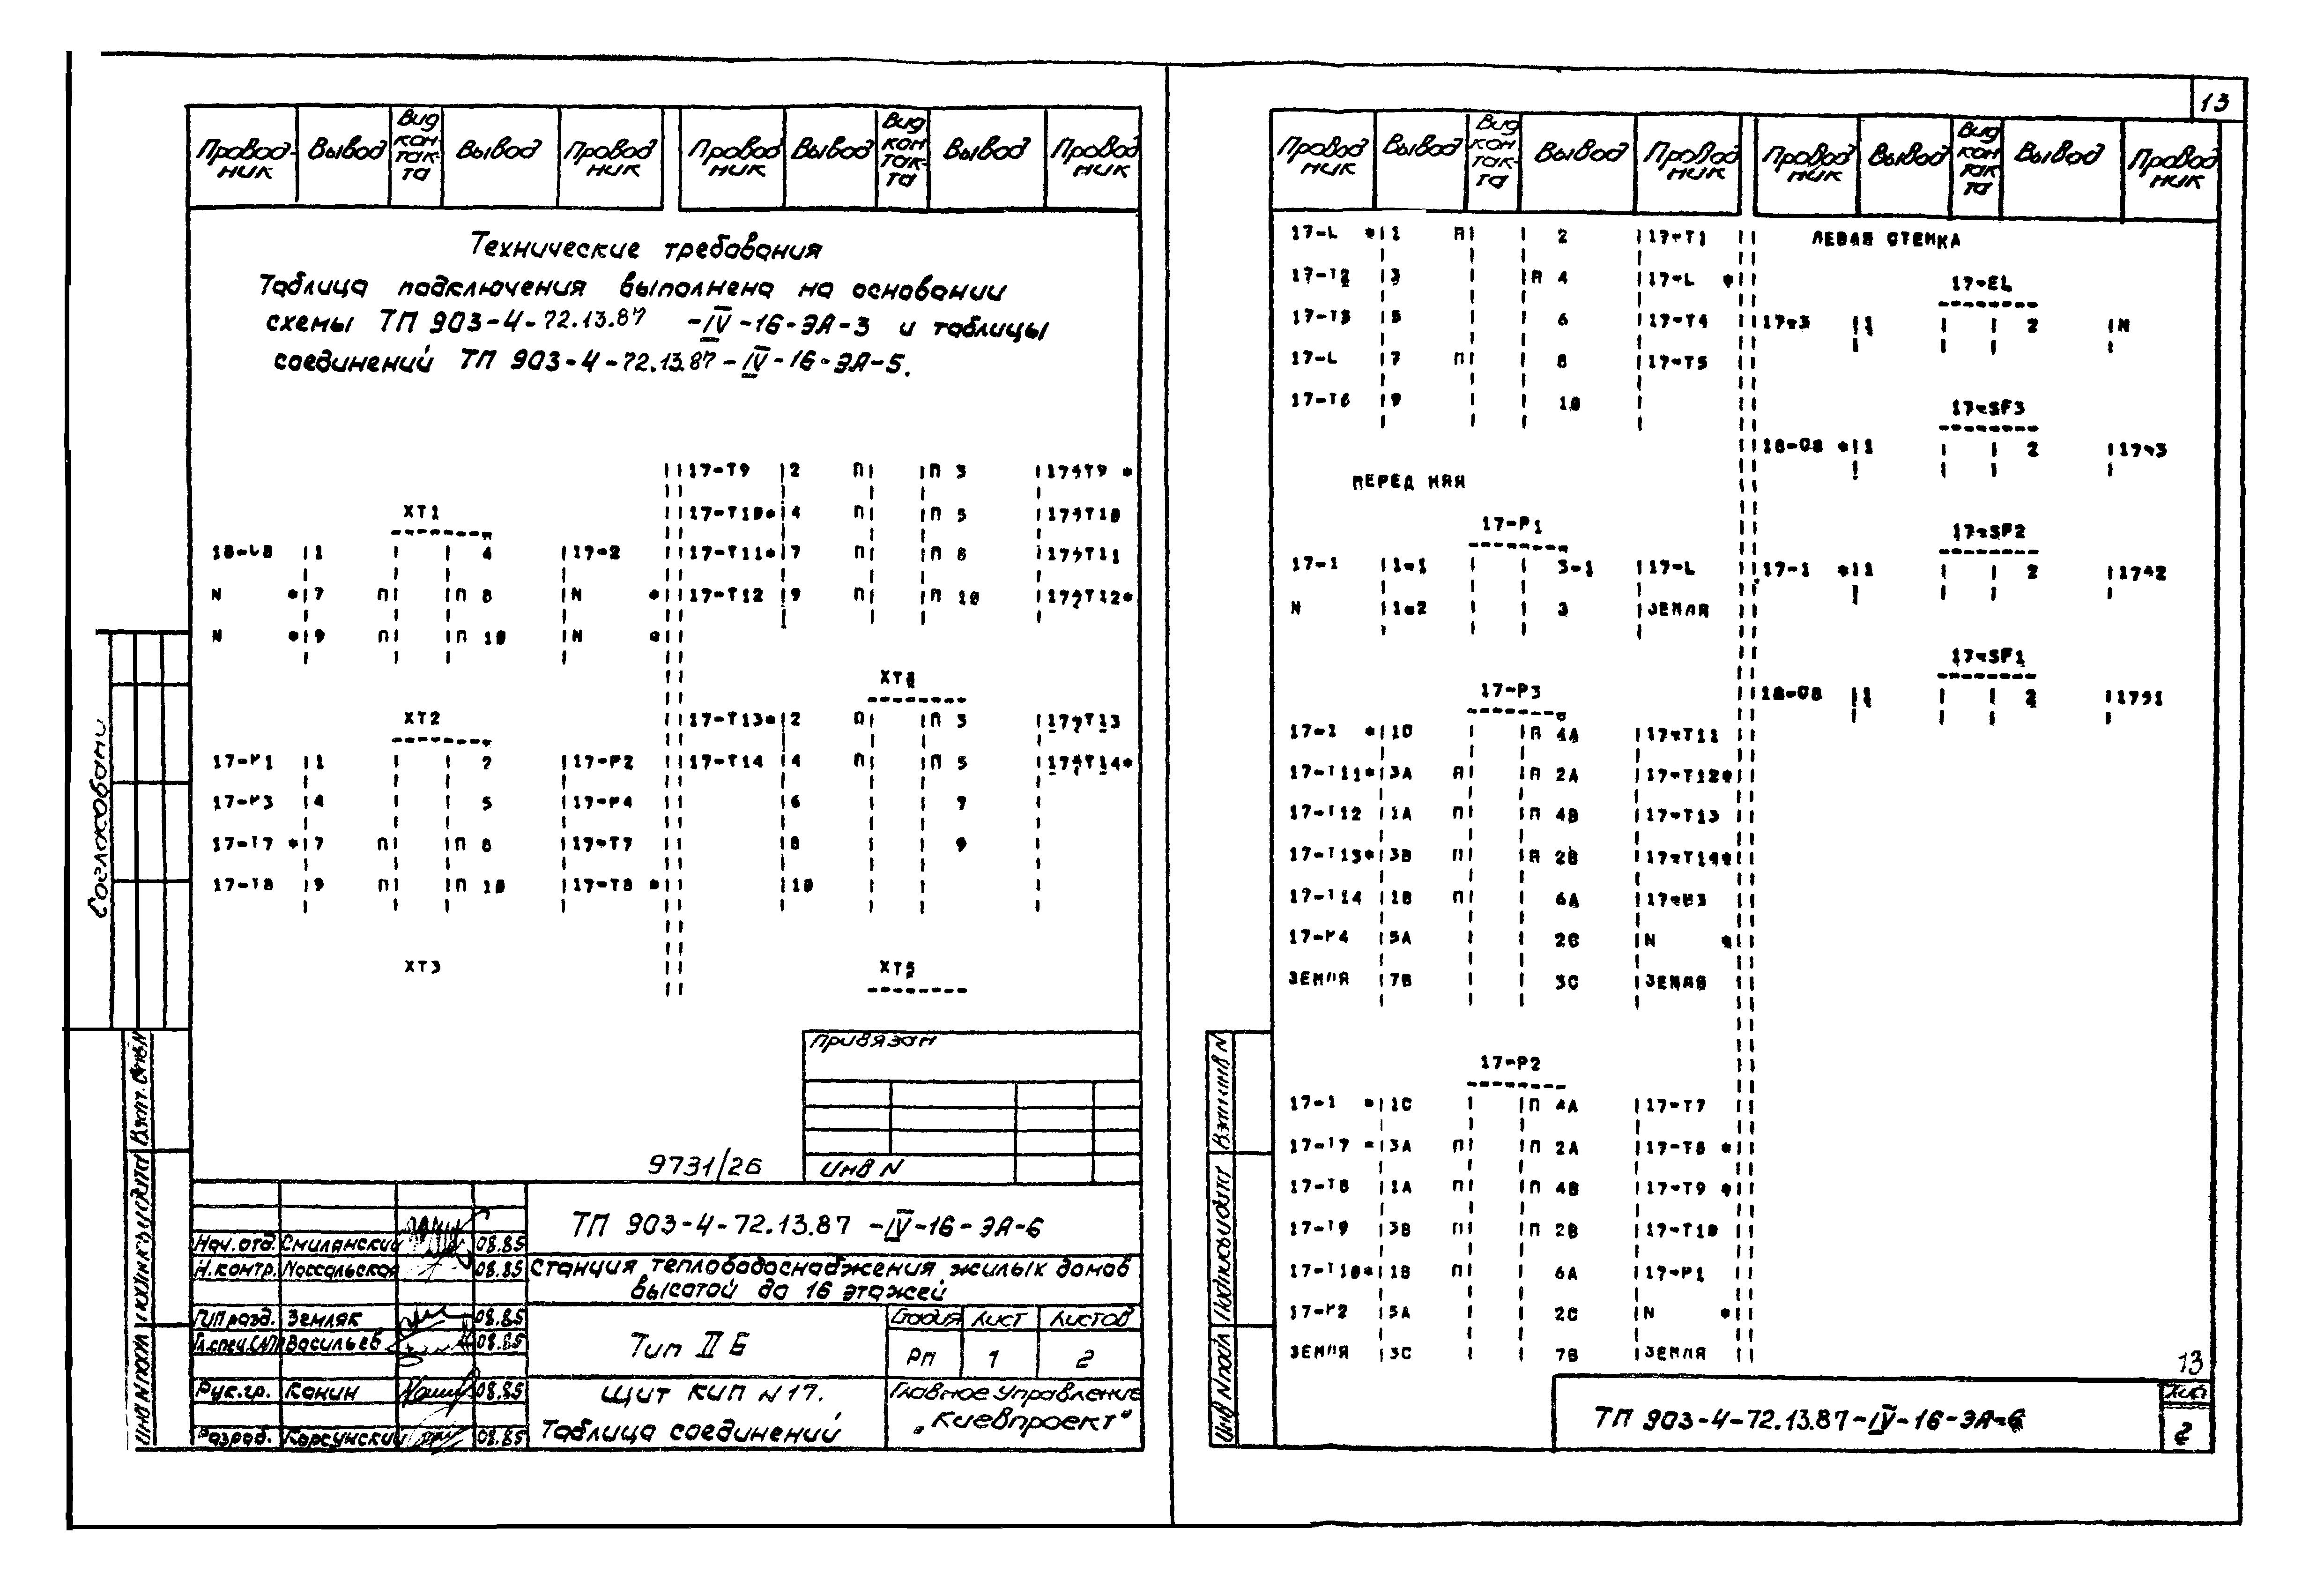 Провод-ник Вывод Вид кон-так-та Вывод Провод ник Провод ник Вывод Вид кон так-та Вывод Провод ник
Технические требования
Таблица подключения выполнена на основании
схемы ТП 903-4-72.13.87 -IV-16-ЭА-3 и таблицы
соединений ТП 903-4-72.13.87-IV-16-ЭА-5.
XT1
1 4 17-2
N * 7 П П 8 N *
N * 9 П П 10 N *
XT2
17-P1 1 2 17-P2
17-P3 4 5 17-P4
17-T7 * 7 П П 8 17-T7
17-T8 9 П П 10 17-T8 *
XT3
17-T9 2 П П 3 17-T9 *
17-T10* 4 П П 5 17-T10
17-T11* 7 П П 8 17-T11
17-T12 9 П П 10 17-T12*
XT4
17-T13* 2 П П 3 17-T13
17-T14 4 П П 5 17-T14*
6 7
8 9
10
XT5
Согласовано
Привязан
Инв N
9731/26
ТП 903-4-72.13.87 -IV-16-ЭА-6
Нач.отд. Смилянский 08.85
Н.контр. Моссальская 08.85
Станция тепловодоснабжения жилых домов
высотой до 16 этажей
ГИП разд. Земляк 08.85
Гл.спец. Васильев 08.85
Тип II Б
Стадия Лист Листов
РП 1 2
Рук.гр. Канин 08.85
Разраб. Корсунский 08.85
Щит КИП N17.
Таблица соединений
Главное управление
"Киевпроект"
Инв N подл Подпись и дата Взам. инв. N
13
Провод ник Вывод Вид кон так-та Вывод Провод ник Провод ник Вывод Вид кон так та Вывод Провод ник
17-L * 1 П 2 17-T1
17-T2 3 П 4 17-L *
17-T3 5 6 17-T4
17-L 7 П 8 17-T5
17-T6 9 10
ПЕРЕДНЯЯ
17-P1
17-1 1-1 3-1 17-L
N 1-2 3 ЗЕМЛЯ
17-P3
17-1 * 1C П 4A 17-T11
17-T11* 3A П П 2A 17-T12*
17-T12 1A П П 4B 17-T13
17-T13* 3B П П 2B 17-T14*
17-T14 1B П 6A 17-P3
17-P4 5A 2C N *
ЗЕМЛЯ 7B 3C ЗЕМЛЯ
17-P2
17-1 * 1C П 4A 17-T7
17-T7 * 3A П П 2A 17-T8 *
17-T8 1A П П 4B 17-T9 *
17-T9 3B П П 2B 17-T10
17-T10* 1B П 6A 17-P1
17-P2 5A 2C N *
ЗЕМЛЯ 3C 7B ЗЕМЛЯ
ЛЕВАЯ СТЕНКА
17-EL
17-3 1 2 N
17-SF3
18-C8 * 1 2 17-3
17-SF2
17-1 * 1 2 17-2
17-SF1
18-C8 1 2 17-1
Инв N подл Подпись и дата Взам инв N
13
ТП 903-4-72.13.87-IV-16-ЭА-6
Лист
2